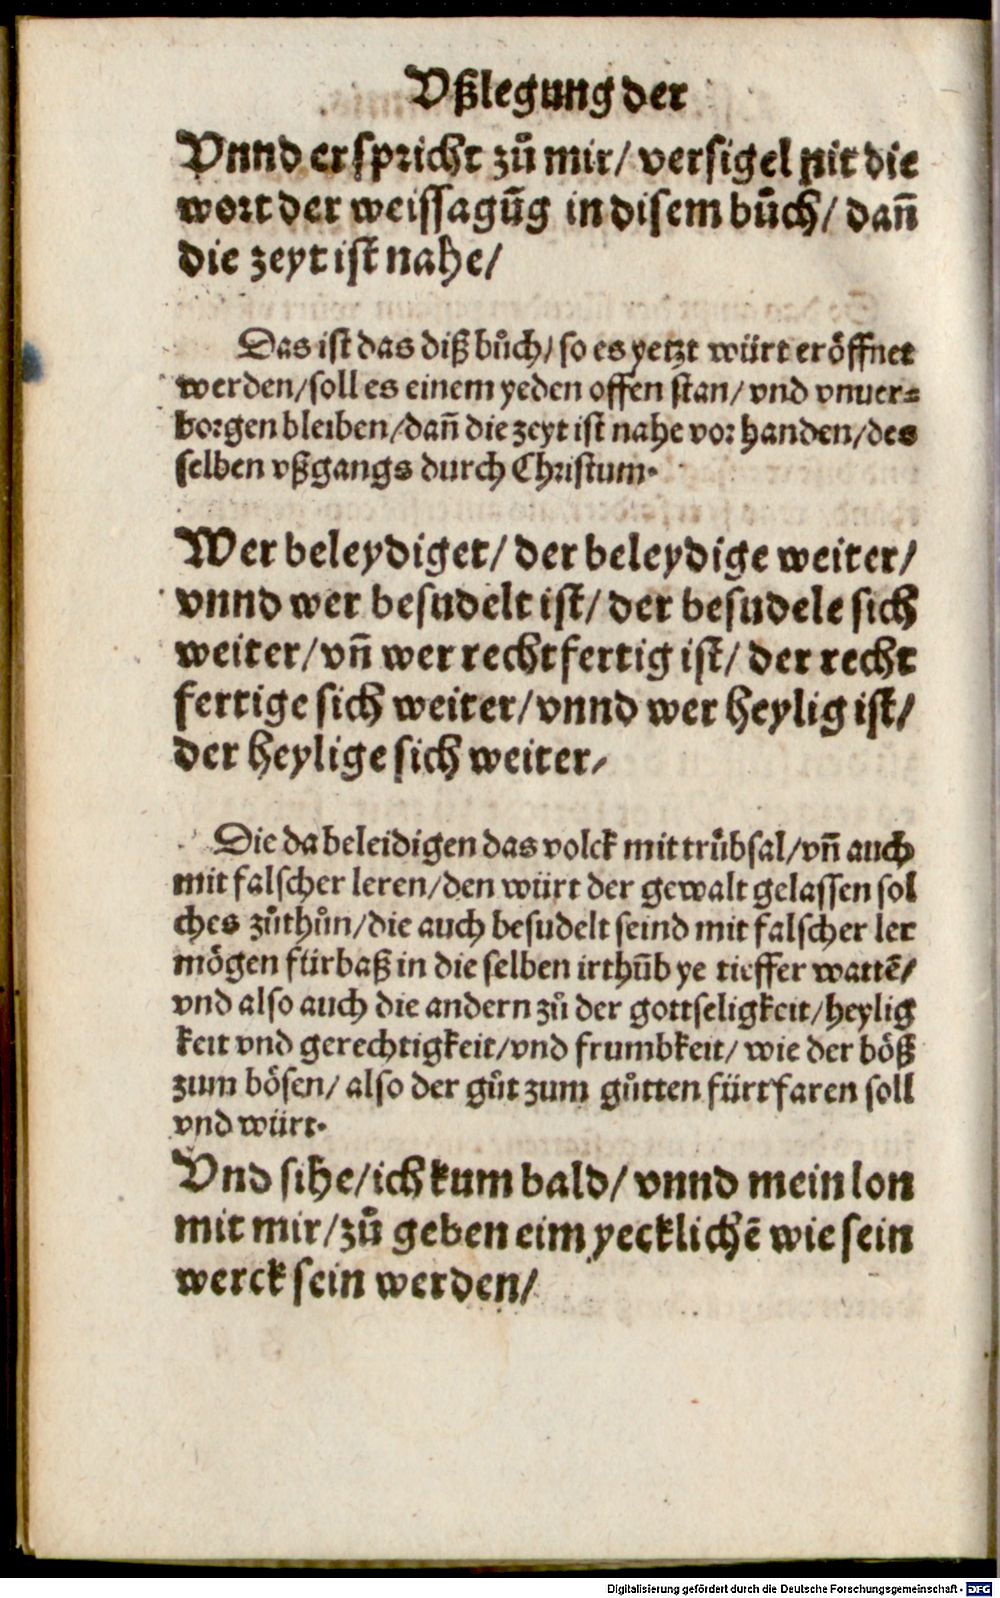 Vßlegung der
Vnnd er spricht zů mir/ versigel nit die
wort der weissagūg in disem bůch/ dañ
die zeyt ist nahe/
Das ist das diß bůch/ so es yetzt würt eröffnet
werden/ soll es einem yeden offen stan/ vnd vnuer⸗
borgen bleiben/ dañ die zeyt ist nahe vor handen/ des
selben vßgangs durch Christum.
Wer beleydiget/ der beleydige weiter/
vnnd wer besudelt ist/ der besudele sich
weiter/ vñ wer rechtfertig ist/ der recht
fertige sich weiter/ vnnd wer heylig ist/
der heylige sich weiter/
Die da beleidigen das volck mit trůbsal/ vñ auch
mit falscher leren/ den würt der gewalt gelassen sol
ches zůthůn/ die auch besudelt seind mit falscher ler
mögen fürbaß in die selben irthūb ye tieffer wattē/
vnd also auch die andern zů der gottseligkeit/ heylig
keit vnd gerechtigkeit/ vnd frumbkeit/ wie der böß
zum bösen/ also der gůt zum gůtten fürt faren soll
vnd würt.
Vnd sihe/ ich kum bald/ vnnd mein lon
mit mir/ zů geben eim yecklichē wie sein
werck sein werden/
Digitalisierung gefördert durch die Deutsche Forschungsgemeinschaft - DFG